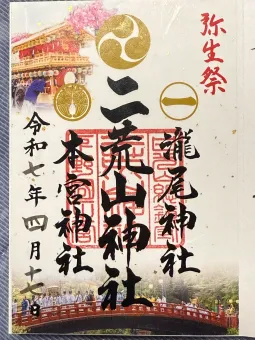 弥生祭
瀧尾神社
二荒山神社
本宮神社
令和七年四月十七日